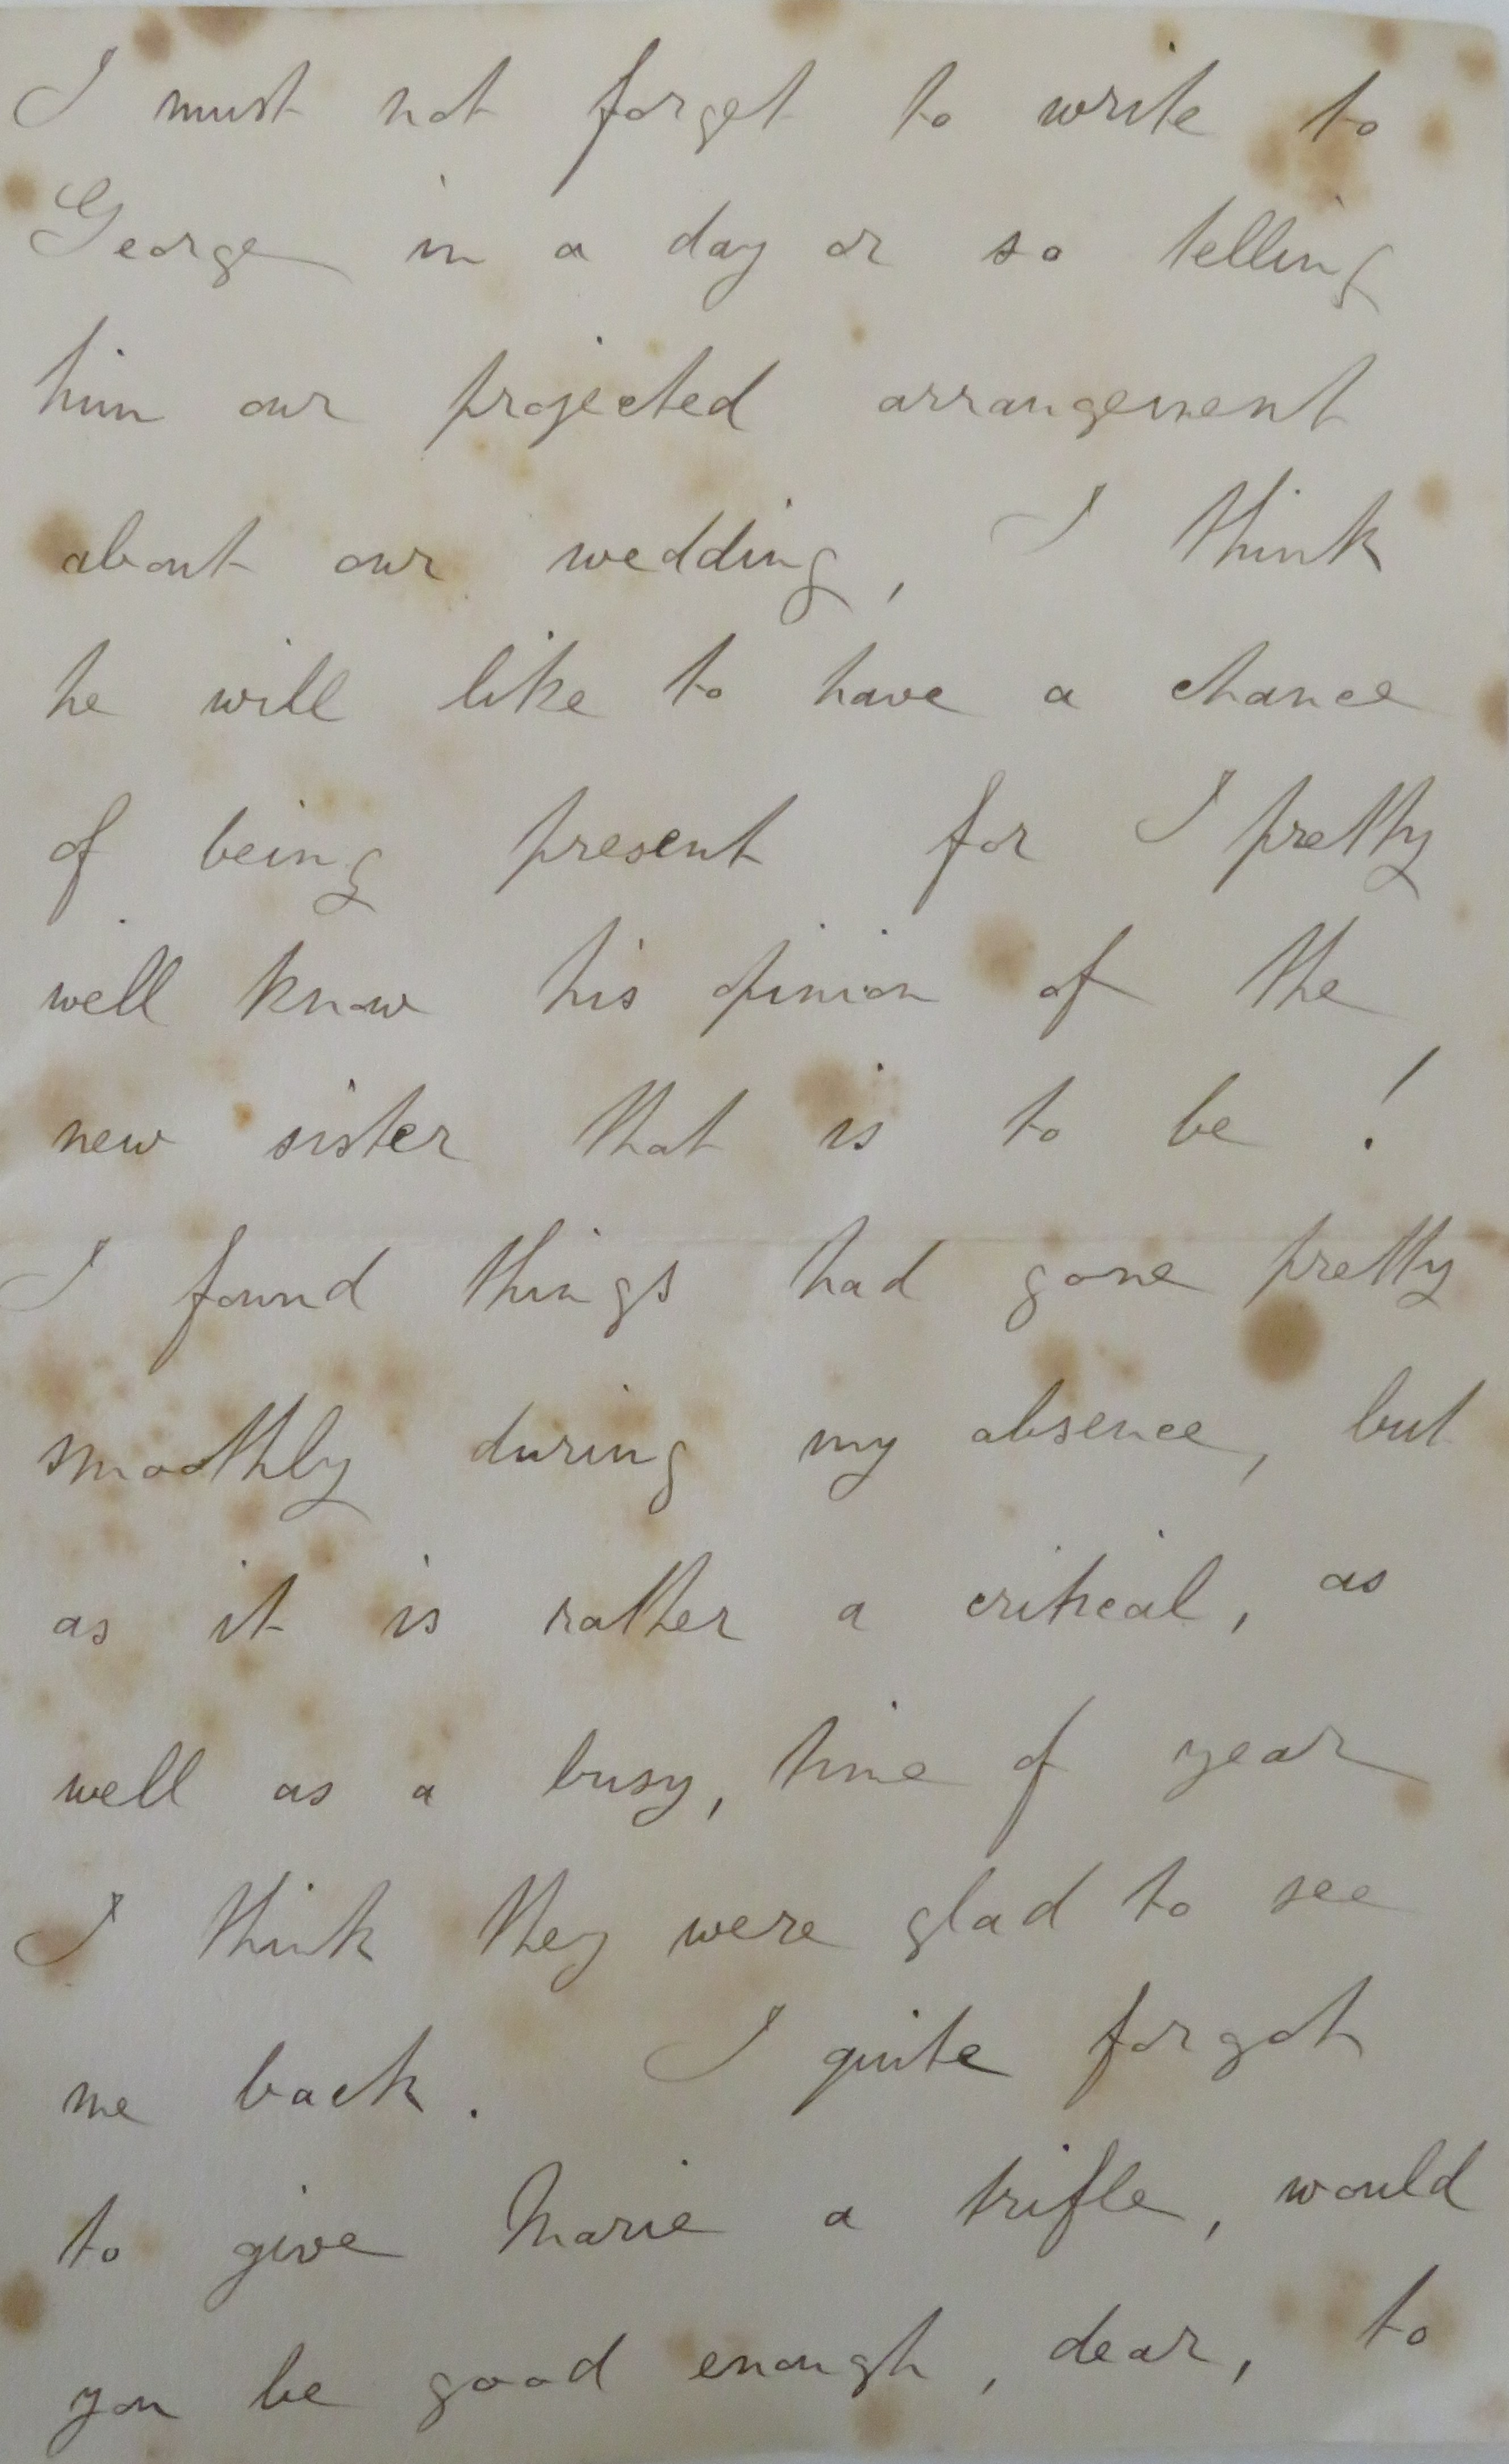 I must not forget to write to
George in a day or so telling
him our projected arrangement
about our wedding, I think
he will like to have a chance
of being present for I pretty
well know his opinion of the
new sister that is to be!
I found things had gone pretty
smoothly during my absence, but
as it is rather a critical, as
well as a busy, time of year
I think they were glad to see
me back. I quite forgot
to give Marie a trifle, would
you be good enough, dear, to